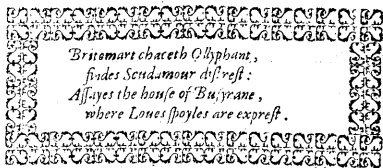 Britomart chaceth Ollyphant,
findes Scudamour distrest:
Assayes the house of Busyrane,
where Loues spoyles are exprest.